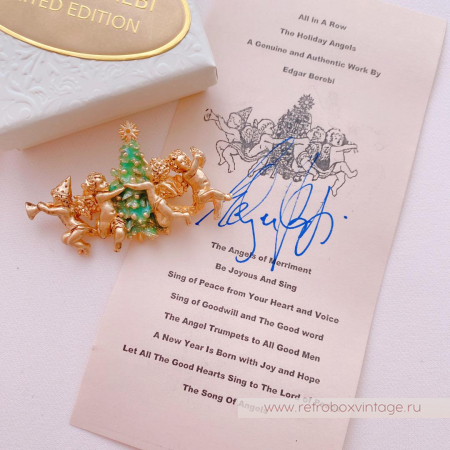 EBI
ITED EDITION
All in A Row
The Holiday Angels
A Genuine and Authentic Work By
Edgar Berebi
The Angels of Merriment
Be Joyous And Sing
Sing of Peace from Your Heart and Voice
Sing of Goodwill and The Good word
The Angel Trumpets to All Good Men
A New Year Is Born with Joy and Hope
Let All The Good Hearts Sing to The Lord of
The Song Of
www.retroboxvintage.ru